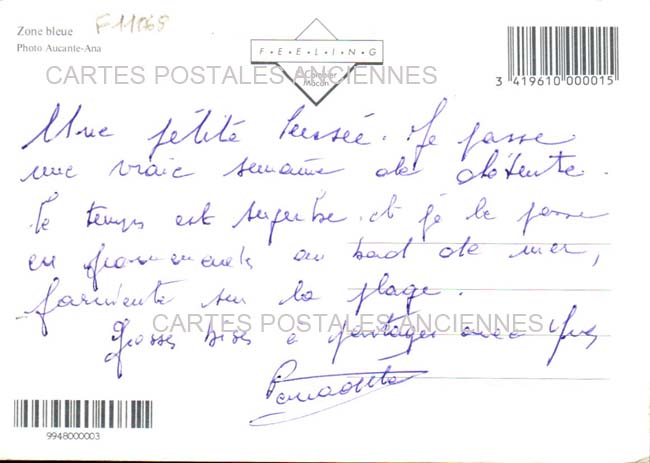 Zone bleue F11068
Photo Aucante-Ana
FEELING
Combier
Macon
3 419610 000015
CARTES POSTALES ANCIENNES
Une pétite pensée. Je passe
une vraie semaine de détente.
Le temps est superbe et je le passe
en promenades au bord de mer,
farniente sur la plage.
CARTES POSTALES ANCIENNES
Grosses bises à partager avec Yves
9948000003